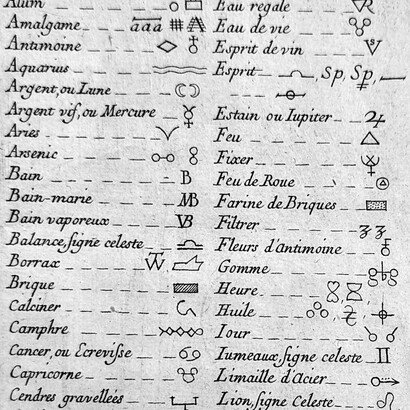 Alum
Amalgame aaa
Antimoine
Aquarius
Argent, ou Lune
Argent vif, ou Mercure
Aries
Arsenic
Bain B
Bain-marie MB
Bain vaporeux VB
Balance, signe celeste
Borrax
Brique
Calciner
Camphre
Cancer, ou Ecrevisse
Capricorne
Cendres gravellées
Eau regale
Eau de vie
Esprit de vin
Esprit Sp,
Estain ou Iupiter
Feu
Fixer
Feu de Roue
Farine de Briques
Filtrer
Fleurs d'antimoine
Gomme
Heure
Huile
Iour
Iumeaux, signe celeste
Limaille d'Acier
Lion, signe Celeste